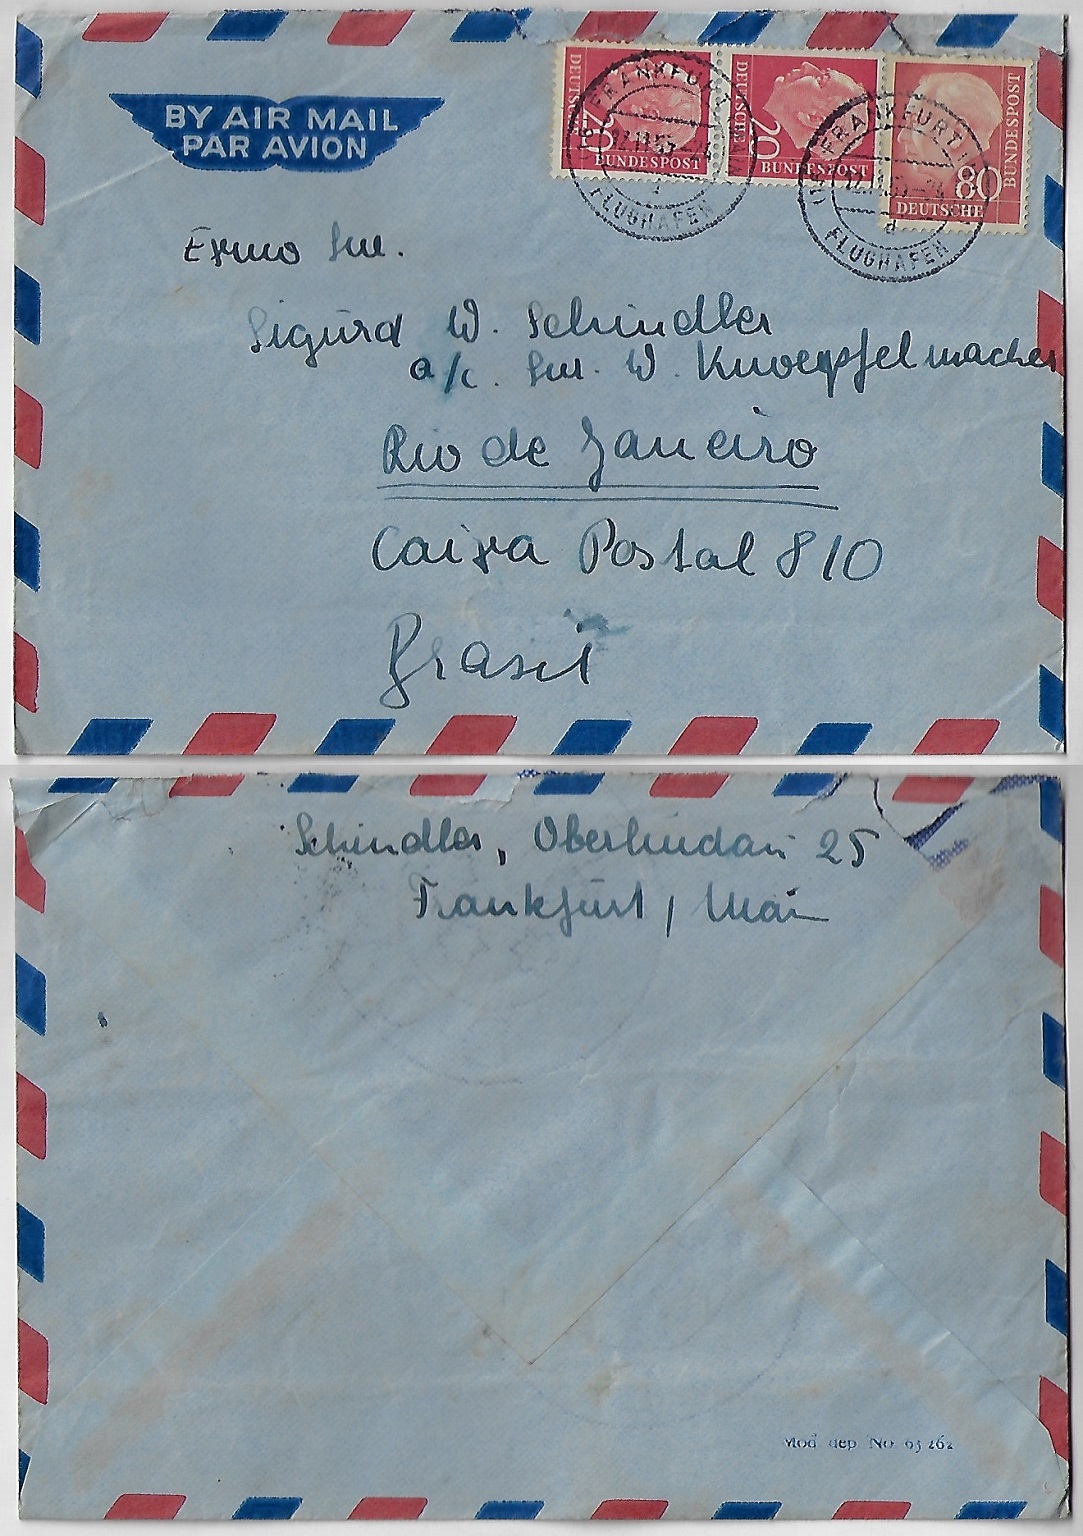 BY AIR MAIL
PAR AVION
DEUTSCHE
20
BUNDESPOST
DEUTSCHE
20
BUNDESPOST
80
DEUTSCHE
BUNDESPOST
FRANKFURT
FLUGHAFEN
FRANKFURT
FLUGHAFEN
Exmo Snr.
Sigurd W. Schindler
a/c. Snr. W. Knoepfelmacher
Rio de Janeiro
Caixa Postal 810
Brasil
Schindler, Oberlindau 25
Frankfurt / Main
Mod dep No 63 262